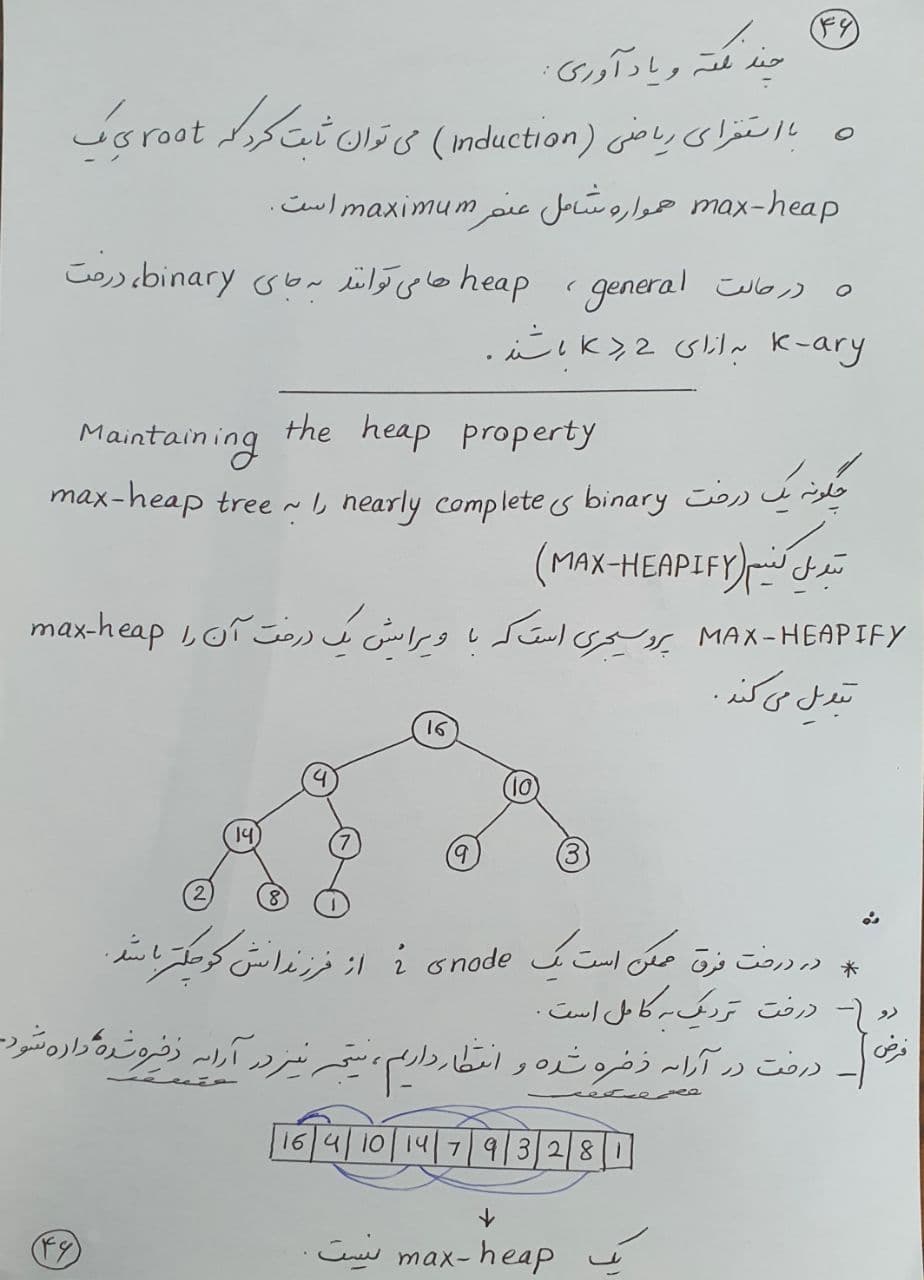 ۴۶
چند نکته و یادآوری:
o با استقرای ریاضی (induction) می توان ثابت کرد که root ی یک
max-heap همواره شامل عنصر maximum است.
o در حالت general ، heap ها می توانند به جای binary، درخت
k-ary به ازای k ⩾ 2 باشند.
Maintaining the heap property
چگونه یک درخت binary ی nearly complete را به max-heap tree
تبدیل کنیم (MAX-HEAPIFY)
MAX-HEAPIFY پروسیجری است که با ویرایش یک درخت آن را max-heap
تبدیل می کند.
16
4 10
14 7 9 3
2 8 1
* در درخت فوق ممکن است یک node ی i از فرزندانش کوچکتر باشد.
دو فرض
- درخت نزدیک به کامل است.
- درخت در آرایه ذخره شده و انتظار داریم، نتیجه نیز در آرایه ذخیره شده داده شود.
16 4 10 14 7 9 3 2 8 1
↓
یک max-heap نیست.
۴۶